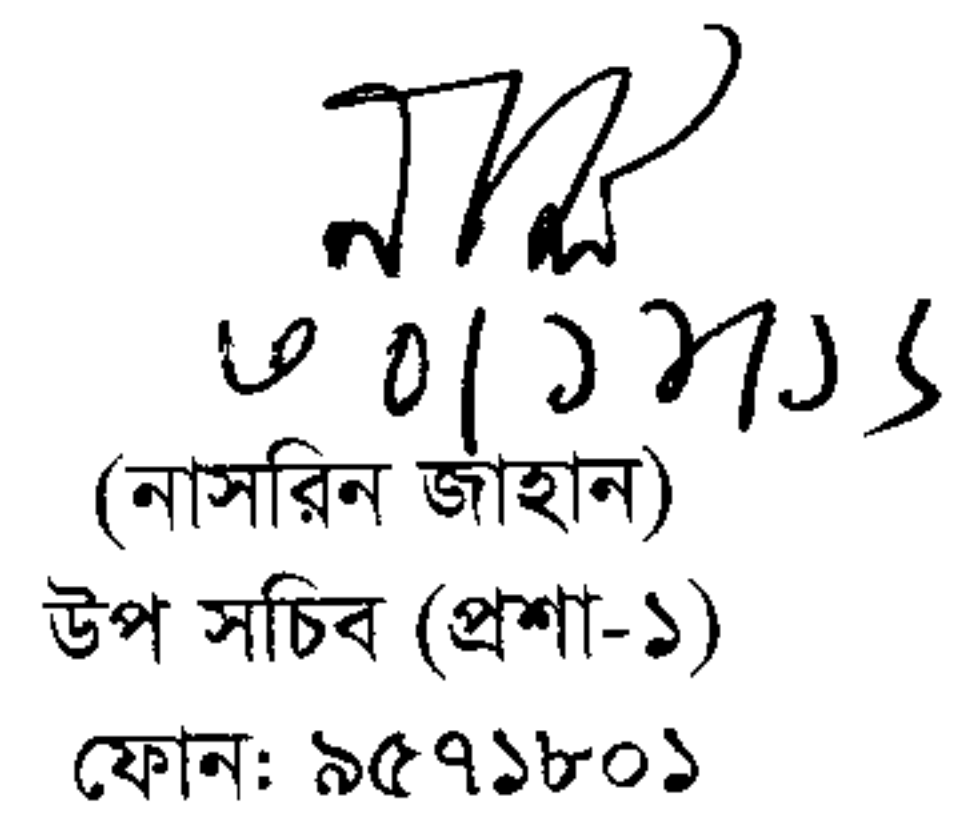 ৩০/১২/১৮
(নাসরিন জাহান)
উপ সচিব (প্রশা-১)
ফোন: ৯৫৭১৮০১